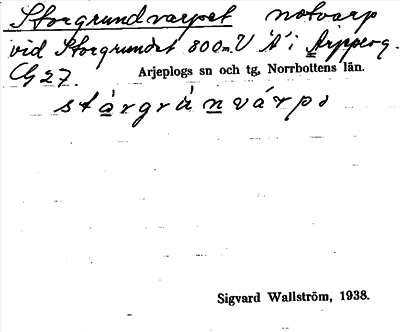 Storgrundvarpet notvarp
vid Storgrundet 800 m. V "Å" i Arjeplog.
G 27. Arjeplogs sn och tg, Norrbottens län.
stårgrànvárpə
Sigvard Wallström, 1938.